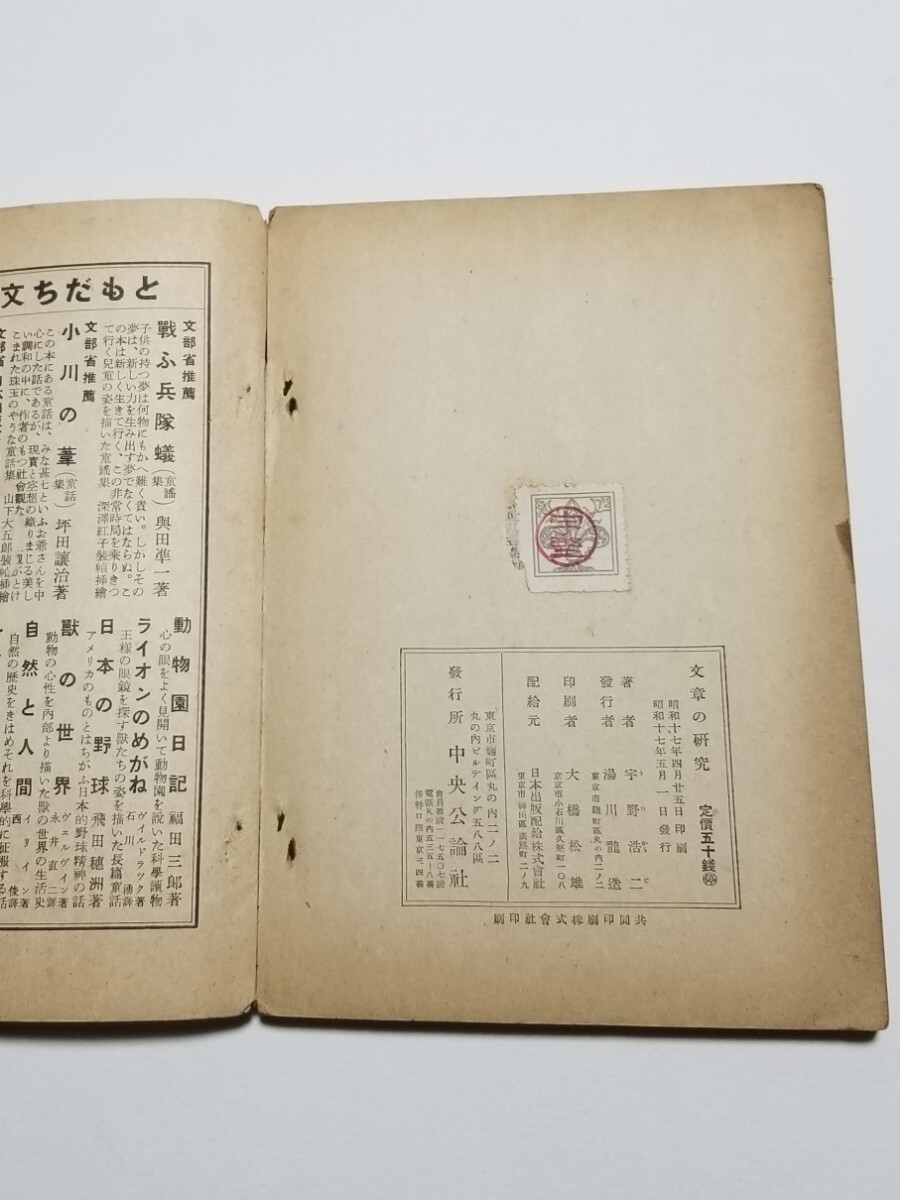 文章の研究
昭和十七年四月廿五日印刷
昭和十七年五月一日發行
定價五十錢
著者 宇野浩二
發行者 湯川龍造
東京市麹町區丸の内二ノ二
印刷者 大橋松雄
東京市小石川區久堅町一〇八
配給元 日本出版配給株式會社
東京市神田區淡路町二ノ九
東京市麹町區丸の内二ノ二
丸の内ビルデイング五八八區
發行所 中央公論社
共同印刷株式會社印刷
宇野
ともだち文
文部省推薦
戰ふ兵隊蟻(童謠集) 與田凖一著
子供の持つ夢は何物にもかへ難く貴い。しかしその
夢は、新しい力を生み出す夢でなくてはならぬ。こ
の本は新しく生きて行く、この非常時局を乘りきつ
て行く兒童の姿を描いた童謠集 深澤紅子裝幀挿繪
文部省推薦
小川の葦(童話集) 坪田讓治著
この本にある童話は、みな甚七といふお爺さんを中
心にした話であるが、現實と空想の織りまじる美し
い調和の中に、作者のもつ社會觀
こまれた珠玉のやうな童話集 山下大五郎裝幀挿繪
動物園日記 福田三郎著
心の眼をよく見開いて動物園を說いた科學讀物
ライオンのめがね ヴイルドラック著 石川湧譯
王樣の眼鏡を探す獸たちの姿を描いた長篇童話
日本の野球 飛田穗洲著
アメリカのものとはちがふ日本的野球精神の話
獸の世界 ヴェルヴイン著 永井直二譯
動物の心性を内部より描いた獸の世界の生活史
自然と人間 イリイン著 西俊譯
自然の歷史をきはめそれを科學的に征服する話